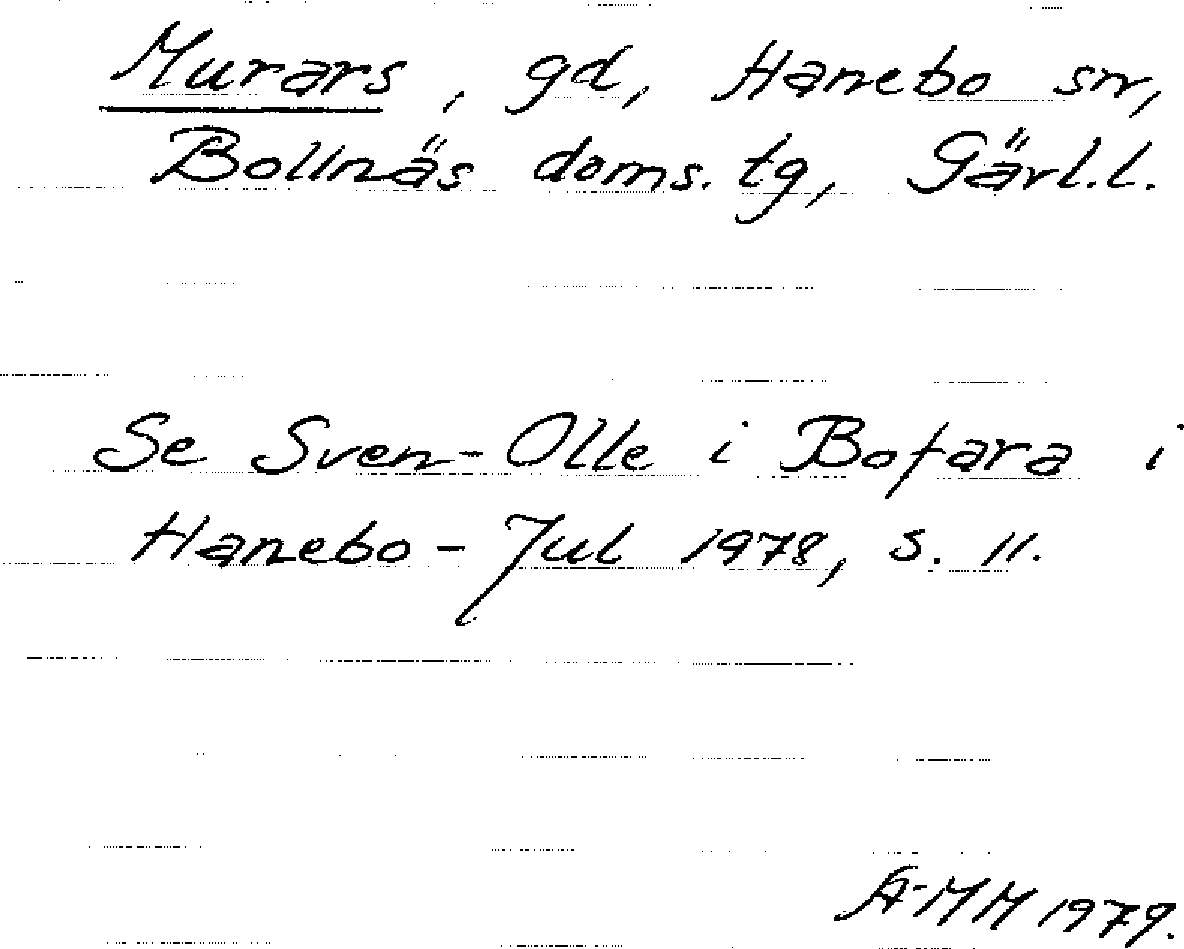 Murars, gd, Hanebo sn,
Bollnäs doms. tg, Gävl.l.
Se Sven-Olle i Bofara i
Hanebo - Jul 1978, s. 11.
A-MM 1979.